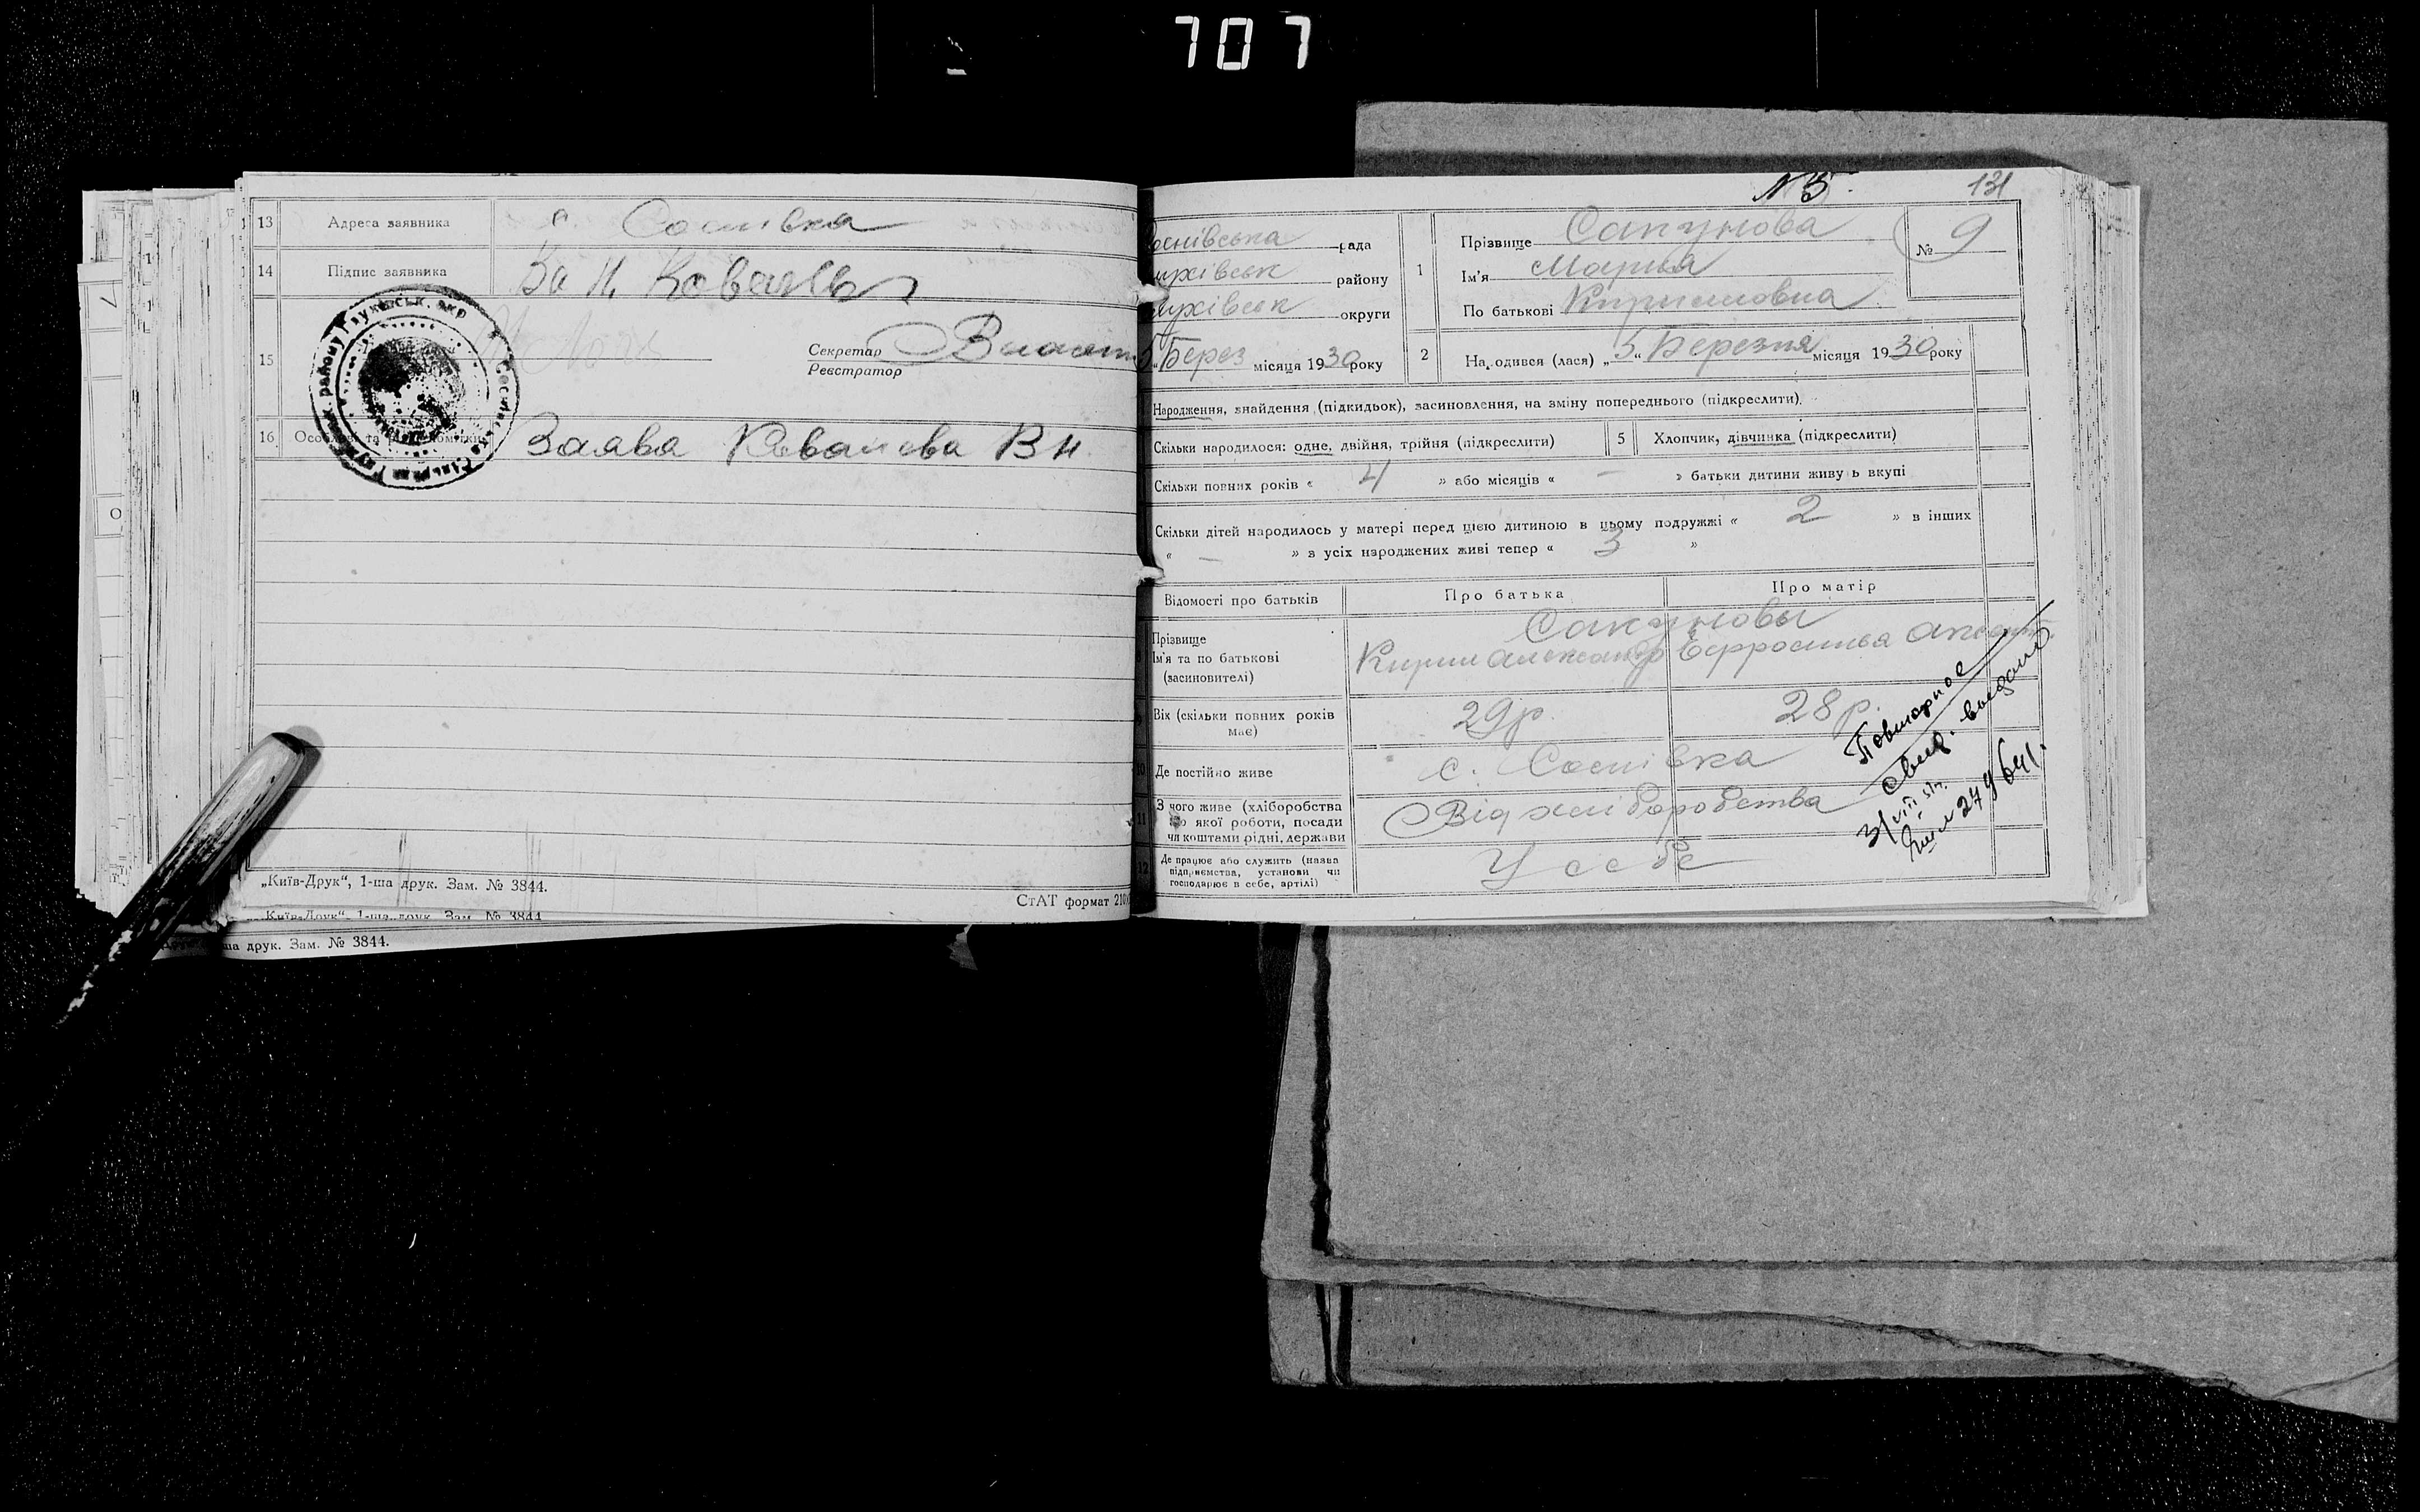 707
13 Адреса заявника с. Соснівка
14 Підпис заявника
15
Секретар
Реєстратор
16 Заява Ковалева В Н.
„Київ-Друк“, 1-ша друк. Зам. № 3844.
СтАТ формат 210
„Київ-Друк“, 1-ша друк. Зам. № 3844
ша друк. Зам. № 3844.
№ 5. 131
оснівська рада
ухівськ району
лухівськ округи
5 „ Берез місяця 1930 року
1 Прізвище Сакунова
Ім'я Мария
По батькові Кириловна
№ 9
2 На одився (лася) „ 5 “ Березня місяця 1930 року
Народження, знайдення (підкидьок), засиновлення, на зміну попереднього (підкреслити).
Скільки народилося: одне, двійня, трійня (підкреслити) 5 Хлопчик, дівчинка (підкреслити)
Скільки повних років « 4 » або місяців « — » батьки дитини живу ь вкупі
Скільки дітей народилось у матері перед цією дитиною в цьому подружжі « 2 » в інших
« — » з усіх народжених живі тепер « 3 »
Відомості про батьків Про батька Про матір
Прізвище Сакуновы
Ім'я та по батькові Кирил Александр
(засиновителі)
Вік (скільки повних років має) 29 р. 28 р.
10 Де постійно живе с. Соснівка
11 З чого живе (хліборобства
о якої роботи, посади
чи коштами рідні, держави Від хліборобства
12 Де працює або служить (назва
підприємства, установи чи
господарює в себе, артілі) У себе
Повторное
свид. выдано
279641.